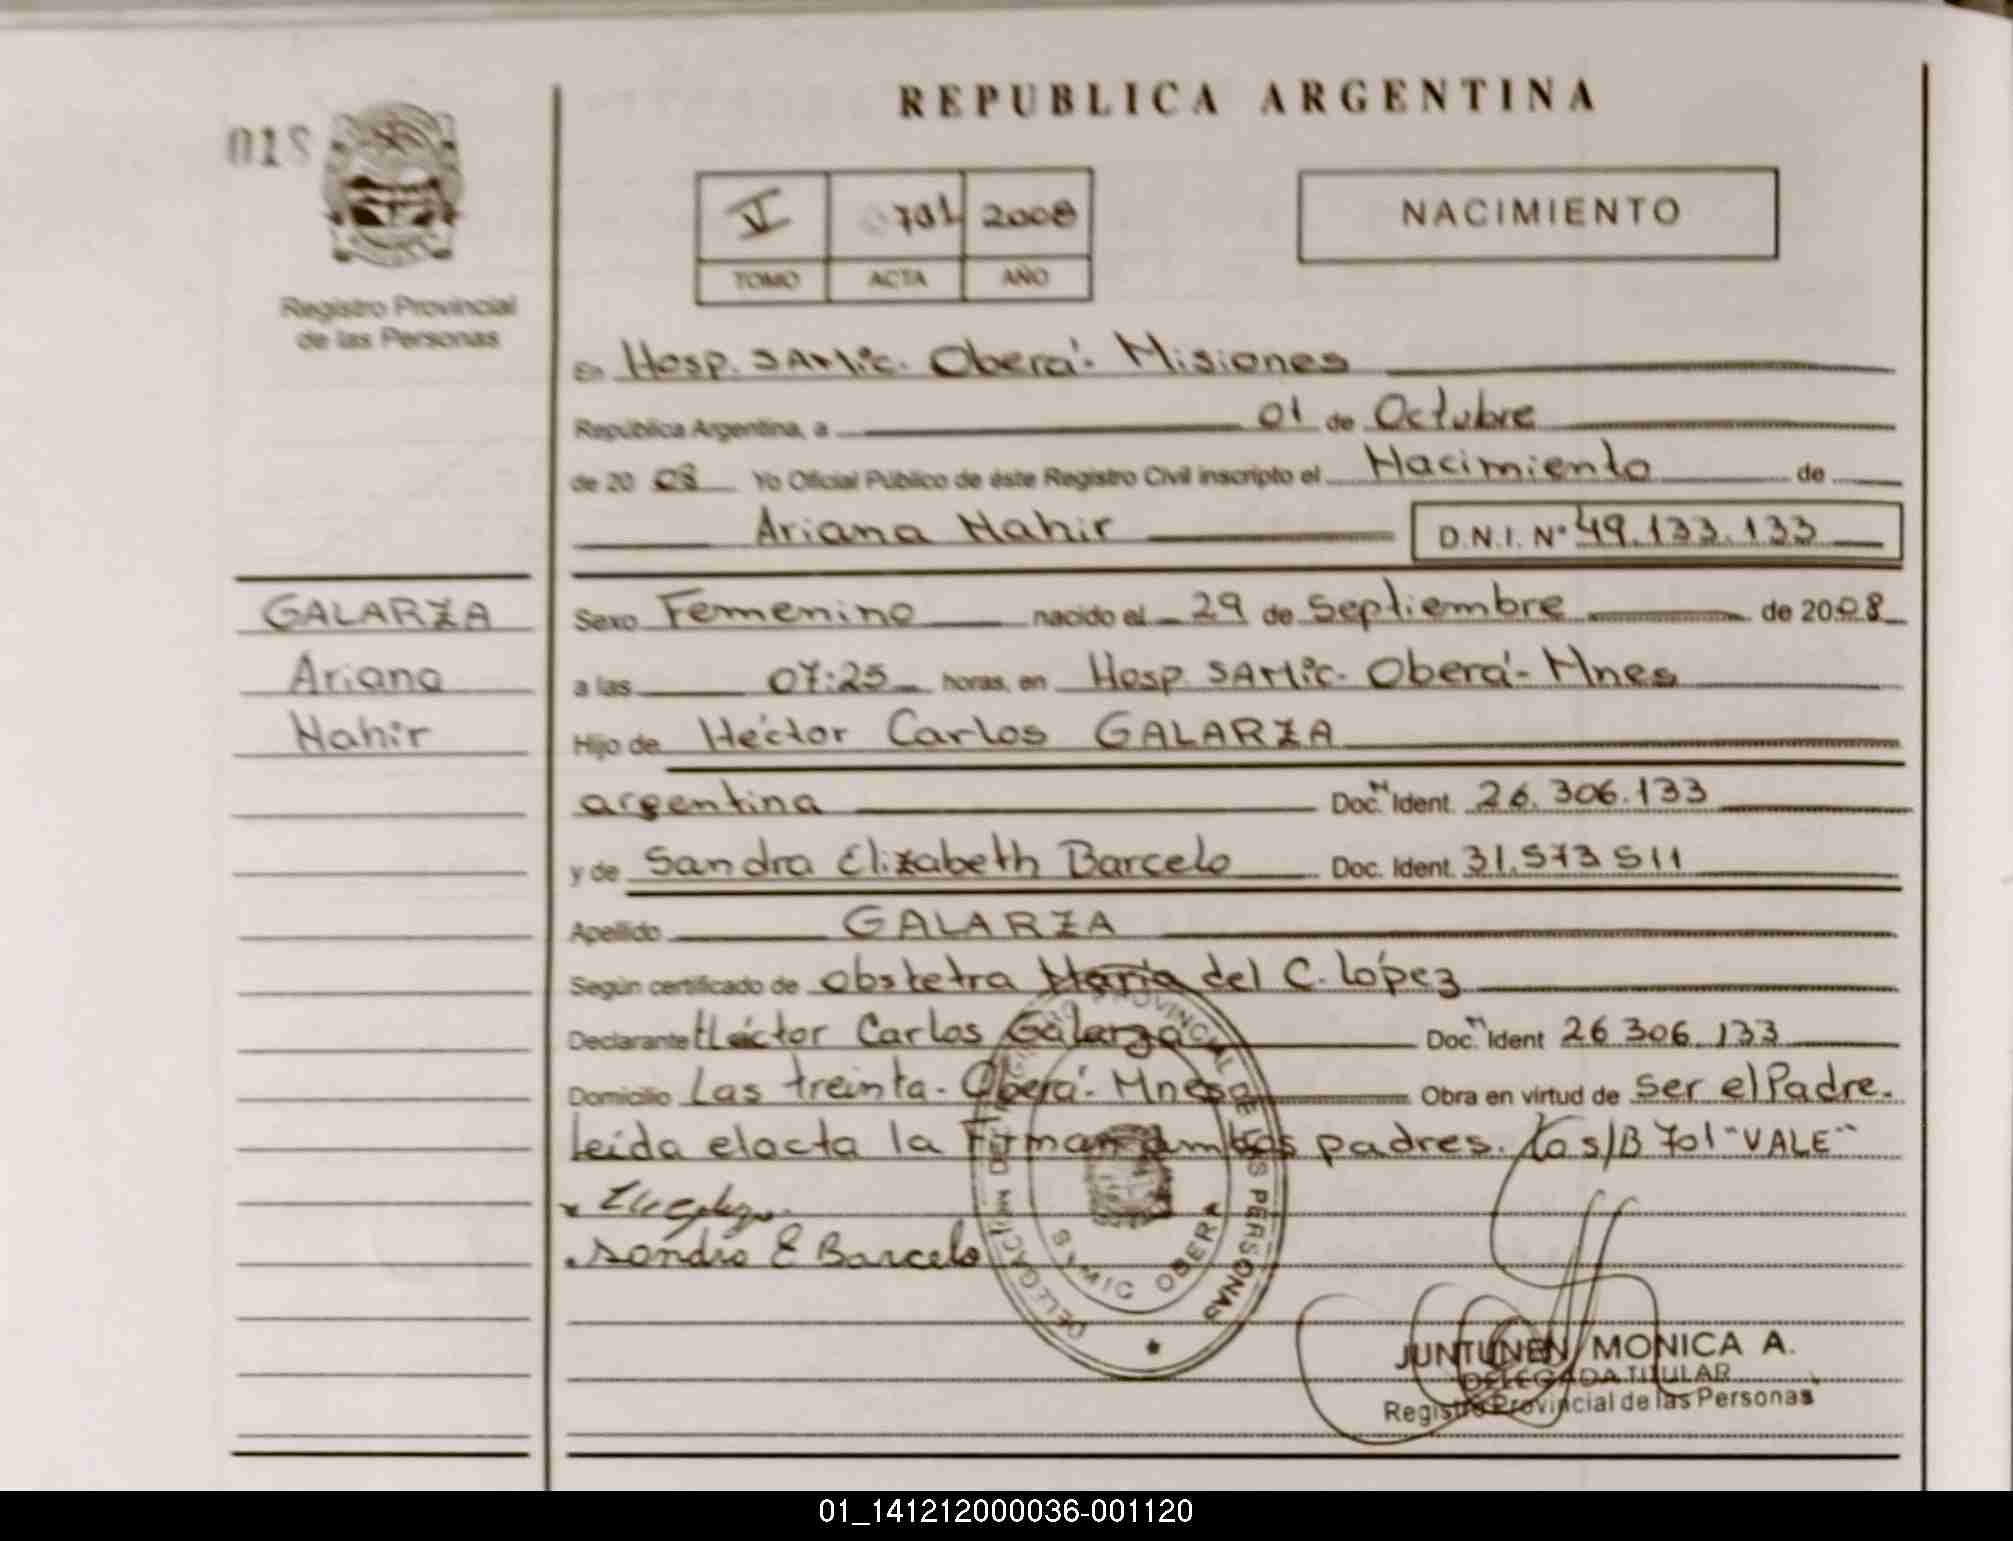 REPUBLICA ARGENTINA
018
V 701 2008
TOMO ACTA AÑO
NACIMIENTO
Registro Provincial
de las Personas
En Hosp. SAMic. Oberá - Misiones
República Argentina, a 01 de Octubre
de 20 08 Yo Oficial Público de éste Registro Civil inscripto el Nacimiento de
Ariana Nahir D.N.I. Nº 49.133.133
GALARZA
Ariana
Nahir
Sexo Femenino nacido el 29 de Septiembre de 2008
a las 07:25 horas, en Hosp SAMic. Oberá - Mnes
Hijo de Héctor Carlos GALARZA
argentina Doc. N Ident. 26.306.133
y de Sandra Elizabeth Barcelo Doc. Ident. 31.573 511
Apellido GALARZA
Según certificado de obstetra María del C. López
Declarante Héctor Carlos Galarza Doc. N Ident 26 306.133
Domicilio Las treinta - Oberá - Mnes Obra en virtud de Ser el Padre.
Leída el acta la Firman ambos padres. s/B 701 "VALE"
Sandra E Barcelo
DELEGACION DEL REGISTRO PROVINCIAL DE LAS PERSONAS
SAMIC OBERA
JUNTUNEN MONICA A.
DELEGADA TITULAR
Registro Provincial de las Personas
01_141212000036-001120